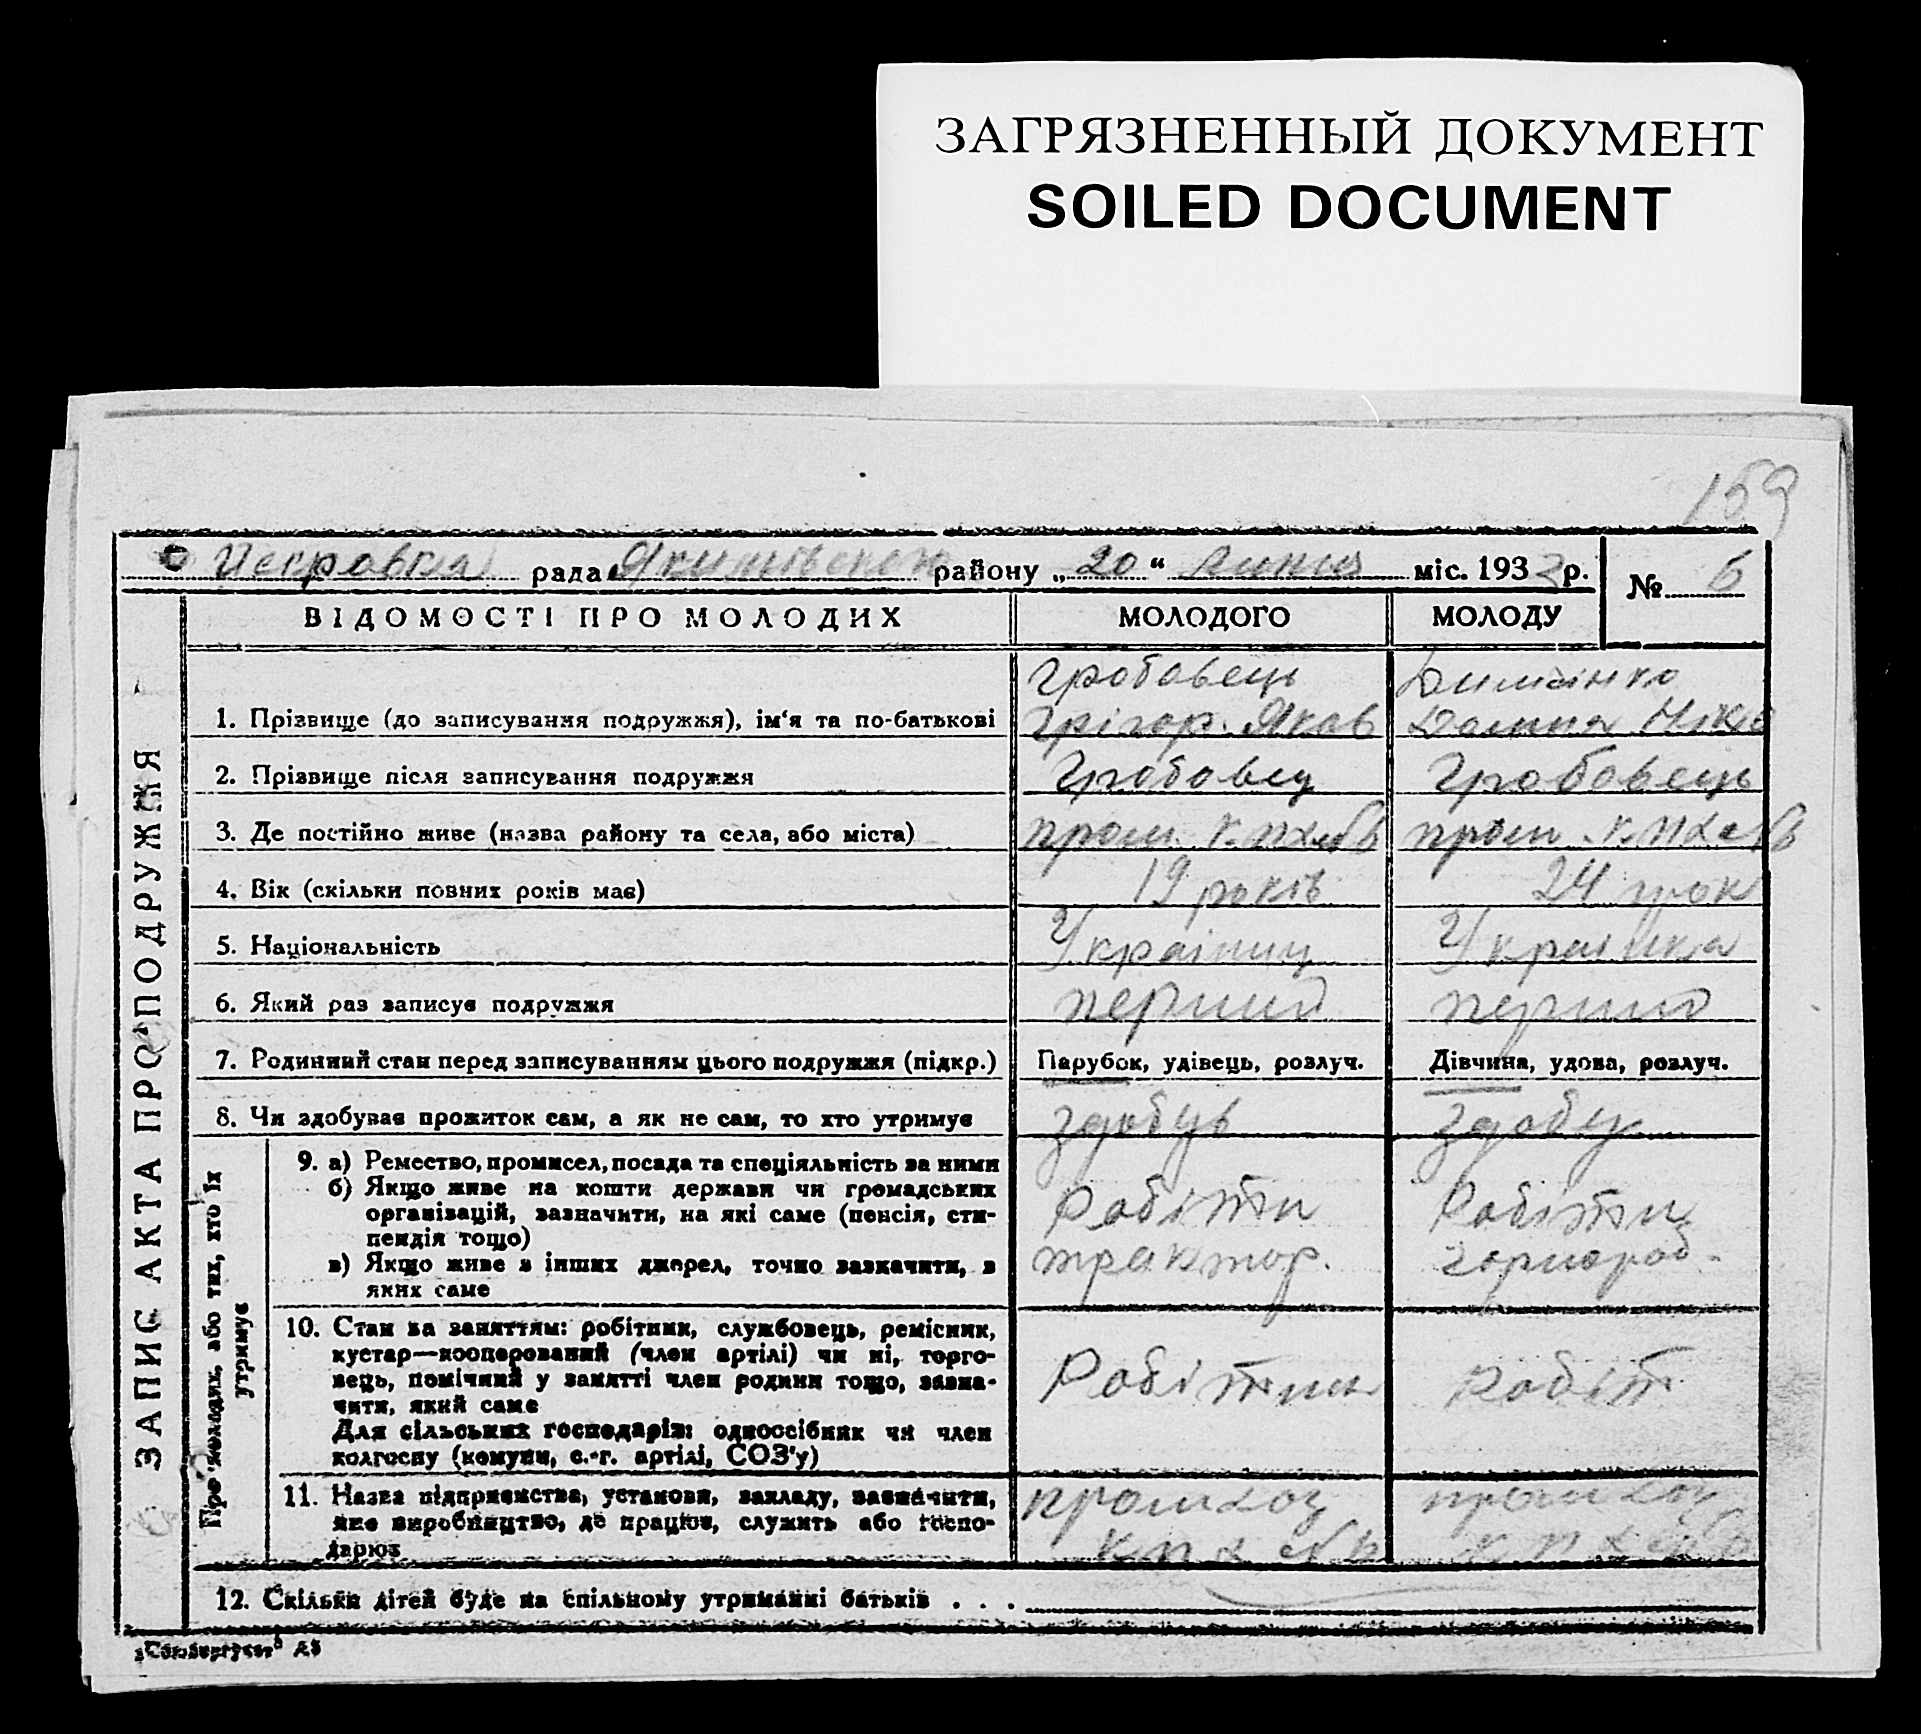 ЗАГРЯЗНЕННЫЙ ДОКУМЕНТ
SOILED DOCUMENT
159
рада района „20“ липня міс. 1933 р.
№ 6
ВІДОМОСТІ ПРО МОЛОДИХ МОЛОДОГО МОЛОДУ
ЗАПИС АКТА ПРО ПОДРУЖЖЯ
1. Прізвище (до записування подружжя), ім'я та по-батькові
Гробовець
Грігор. Яков
2. Прізвище після записування подружжя Гробовец Гробовець
3. Де постійно живе (назва району та села, або міста)
4. Вік (скільки повних років має) 19 років 24 рок
5. Національність Українец Українка
6. Який раз записує подружжя перший перший
7. Родинний стан перед записуванням цього подружжя (підкр.) Парубок, удівець, розлуч. Дівчина, удова, розлуч.
8. Чи здобуває прожиток сам, а як не сам, то хто утримує здобув здобу
Про молодих, або тих, хто їх
утримує
9. а) Ремество, промисел, посада та спеціяльність за ними
б) Якщо живе на кошти держави чи громадських
організацій, зазначити, на які саме (пенсія, сти-
пендія тощо)
в) Якщо живе з інших джерел, точно зазначити, з
яких саме
Робітни
трактор.
Робітни
чорнороб.
10. Стан за заняттям: робітник, службовець, ремісник,
кустар—кооперований (член артілі) чи ні, торго-
вець, помічний у занятті член родини тощо, зазна-
чити, який саме
Для сільських господарів: одноосібник чи член
колгоспу (комуни, с.-г. артілі, СОЗ'у)
Робітник Робіт
11. Назва підприємства, установи, закладу, зазначити,
яке виробництво, де працює, служить або госпо-
дарює
12. Скільки дітей буде на спільному утриманні батьків . . .